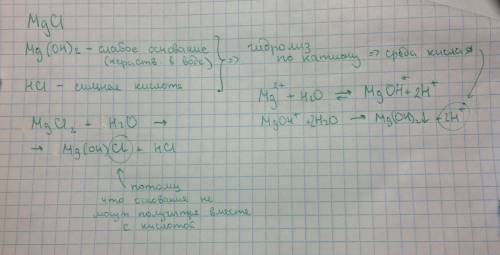 MgCl
Mg(OH)₂ – слабое основание
(нераств в воде)
HCl – сильная кислота
⇒ гидролиз
по катиону ⇒ среда кислая
Mg²⁺ + H₂O ⇄ MgOH⁺ + 2H⁺
MgOH⁺ + 2H₂O → Mg(OH)₂↓ + 2H⁺
MgCl₂ + H₂O →
→ Mg(OH)Cl + HCl
потому
что основания не
могут получится вместе
с кислотой